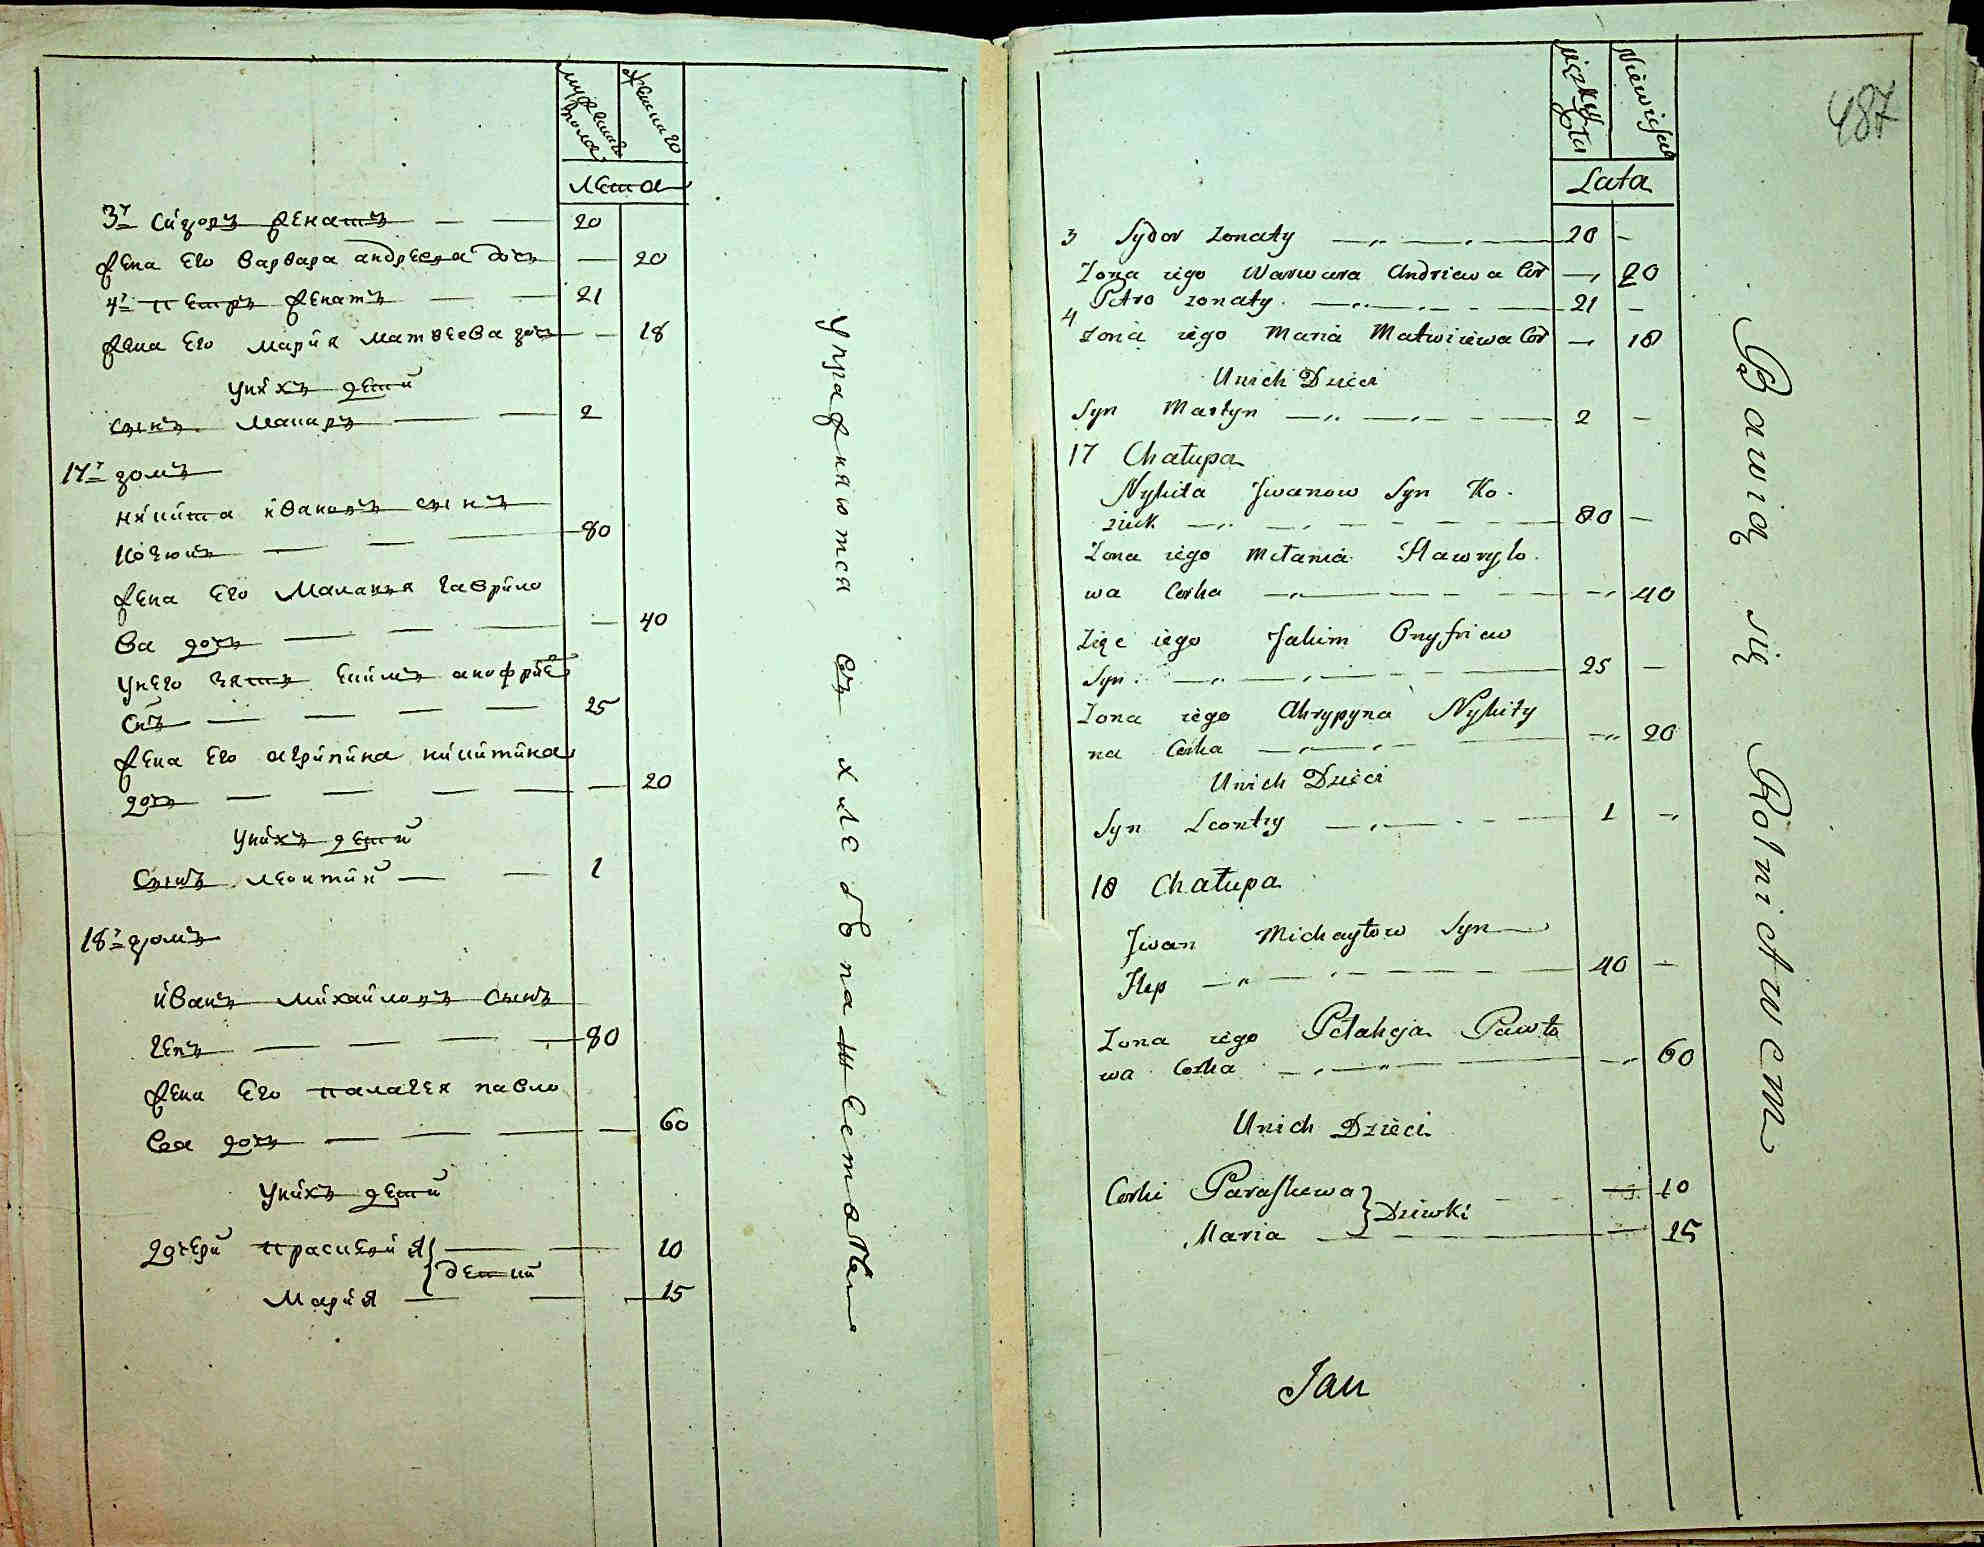 мужеска пола
женска го
лета
3й Сидоръ женатъ 20
жена его варвара андреева дочь 20
4й петръ женатъ 21
жена его мария матвеева дочь 18
у них дети
сынъ макаръ 2
17й домъ
никита иванов сынъ
козюкъ 80
жена его маланья гаврило
ва дочь 40
у него зять еким анофрие
сынъ 25
жена его агрипина никитина
дочь 20
у них дети
сынъ леонтий 1
18й домъ
иванъ михайловъ сынъ
гепъ 80
жена его палагея павло
ва дочь 60
у них дети
дочери прасковия 10
девки
мария 15
упражняются въ хлебопашестве
487
męzkey płci
Niewiesci
Lata
3 Sydor zonaty 20
Zona iego Warwara Andriewa Cor 20
4 Petro zonaty 21
Zona iego Maria Matwiiewa Cor 18
Unich Dzieci
Syn Martyn 2
17 Chałupa
Nykita Jwanow Syn Ko
ziuk 80
Zona iego Mełania Hawryło
wa Corka 40
Zięć iego Jakim Onyfriew
Syn 25
Zona iego Ahrypyna Nykity
na Corka 20
Unich Dzieci
Syn Leontiy 1
18 Chałupa
Jwan Michayłow Syn
Hep 40
Zona iego Pełaheja Pawło
wa Corka 60
Unich Dzieci
Corki Paraskewa 10
Dziewki
Maria 15
Jan
Bawią się Rolnictwem